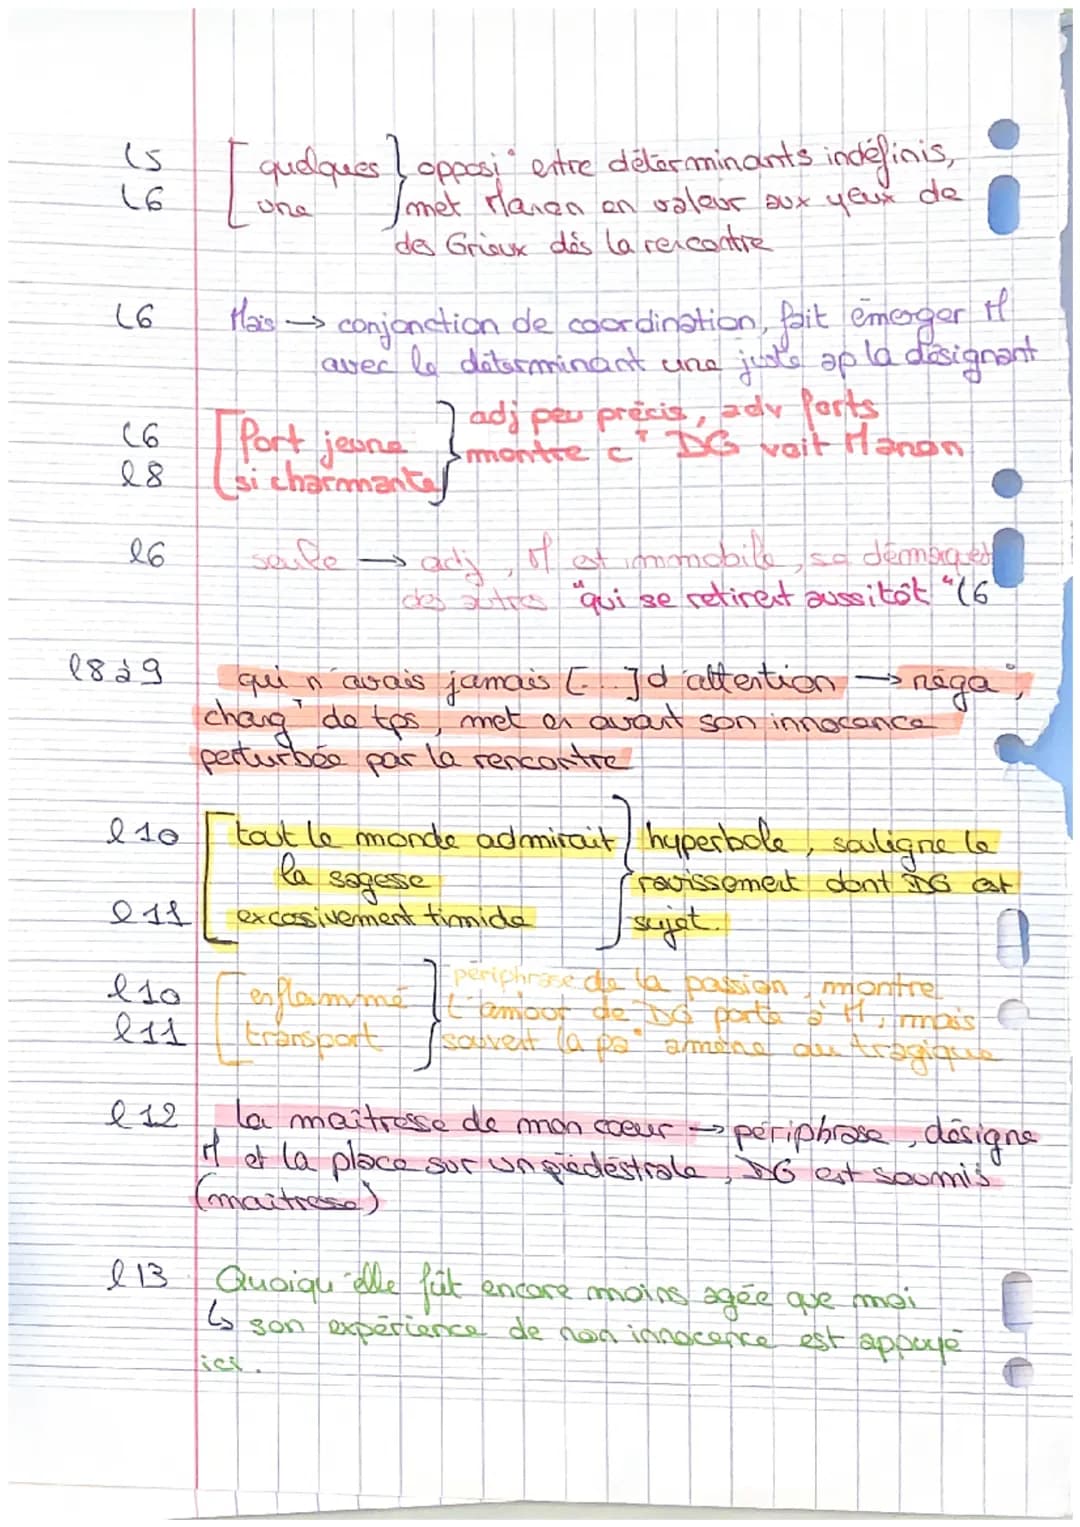 l5 quelques } opposi° entre déterminants indéfinis,
l6 une met Manon en valeur aux yeux de
des Grieux dès la rencontre
l6 Mais → conjonction de coordination, fait émerger M
avec le déterminant une juste ap la désignant
adj peu précis, adv forts
l6 Fort jeune montre c^t DG voit Manon
l8 si charmante
l6 seule → adj, M est immobile, se démarquet
des autres "qui se retirent aussitôt" l6
l8 à 9 qui n'avais jamais [...] d'attention → néga°,
chang^t de tps, met en avant son innocence
perturbée par la rencontre
l10 tout le monde admirait } hyperbole, souligne le
la sagesse ravissement dont DG est
l11 excessivement timide sujet.
périphrase de la passion, montre
l10 enflammé l'amour de DG porte à M, mais
l11 transport souvent la pa° amène au tragique
l12 la maîtresse de mon cœur → périphrase, désigne
M et la place sur un piédéstrale, DG est soumis
(maitresse)
l13 Quoiqu'elle fût encore moins agée que moi
↳ son expérience de non innocence est appuyé
ici.